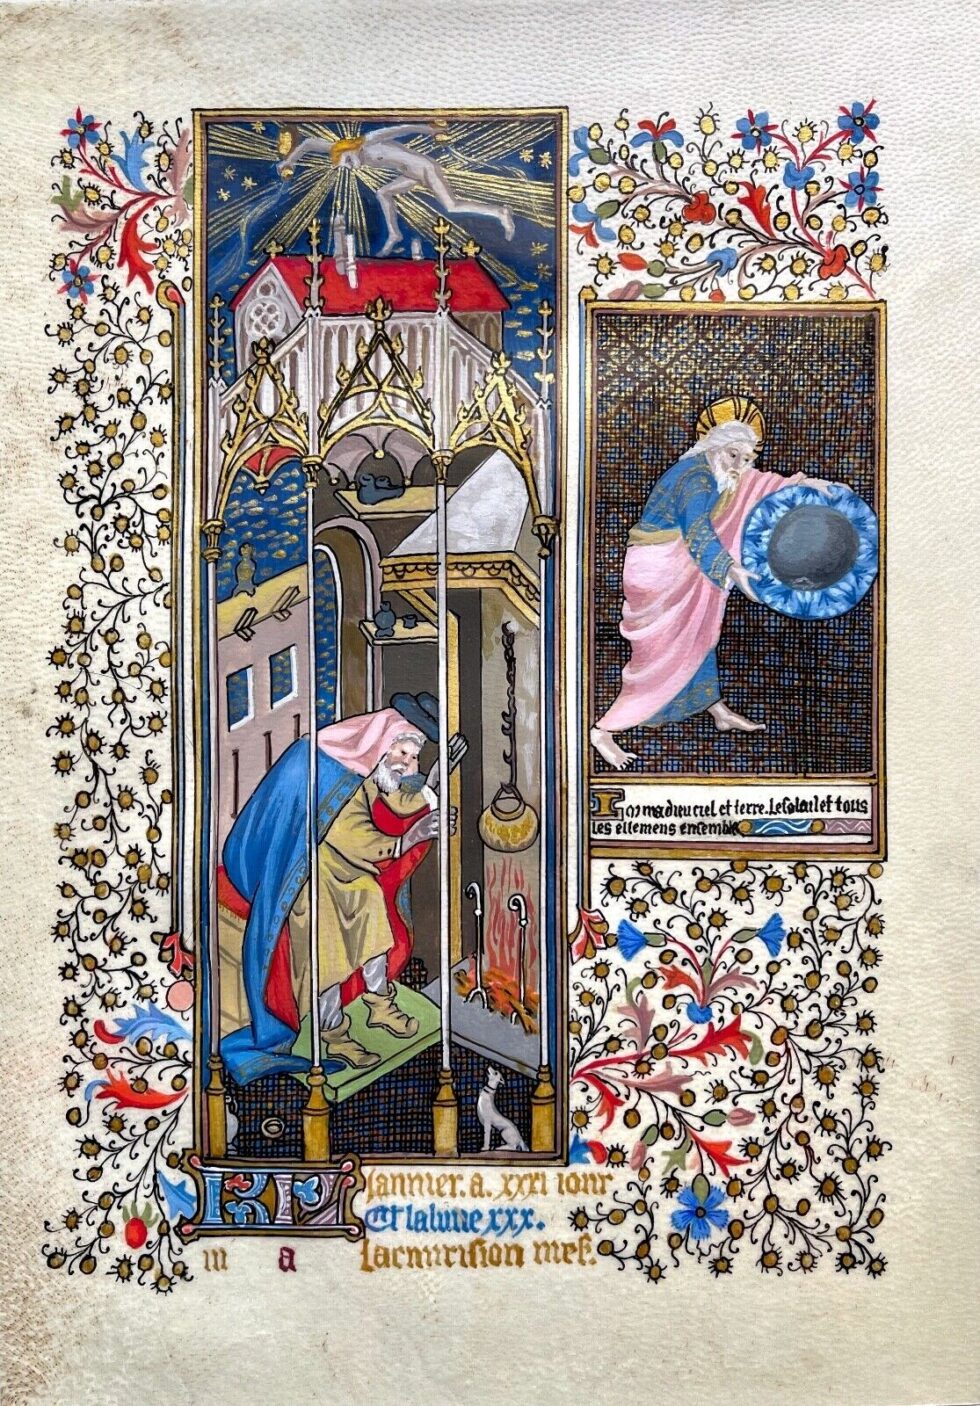 Icy ma dieu ciel et terre. Le soleil et tous
les ellemens ensemble
KL Jannier. a. xxxi iour
Et la lune xxx.
iii a La cincision mes.